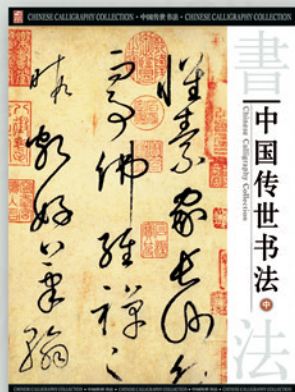 CHINESE CALLIGRAPHY COLLECTION • 中国传世书法 • CHINESE CALLIGRAPHY COLLECTION
書
中国传世书法
中
Chinese Calligraphy Collection
法
懷素家長沙幼
而事佛經禪之
暇頗好筆翰
CHINESE CALLIGRAPHY COLLECTION • 中国传世书法 • CHINESE CALLIGRAPHY COLLECTION